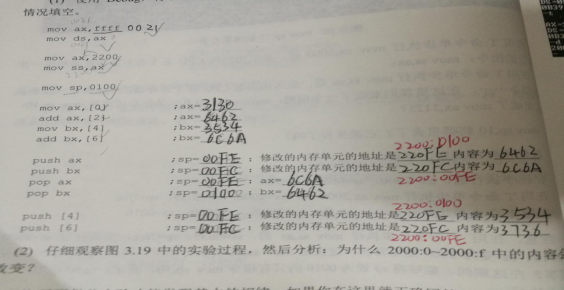 情况填空。
mov ax,ffff 0021
mov ds,ax
mov ax,2200
mov ss,ax
mov sp,0100
mov ax,[0] ;ax=3130
add ax,[2] ;ax=6462
mov bx,[4] ;bx=3534
add bx,[6] ;bx=6C6A
2200:0100
push ax ;sp=00FE ; 修改的内存单元的地址是220FE内容为6462
push bx ;sp=00FC ; 修改的内存单元的地址是220FC内容为6C6A
pop ax ;sp=00FE ; ax=6C6A 2200:00FE
pop bx ;sp=0100 ; bx=6462
2200:0100
push [4] ;sp=00FE ; 修改的内存单元的地址是220FE 内容为3534
push [6] ;sp=00FC ; 修改的内存单元的地址是220FC 内容为3736
2200:00FE
(2) 仔细观察图 3.19 中的实验过程，然后分析：为什么 2000:0~2000:f 中的内容会
改变？